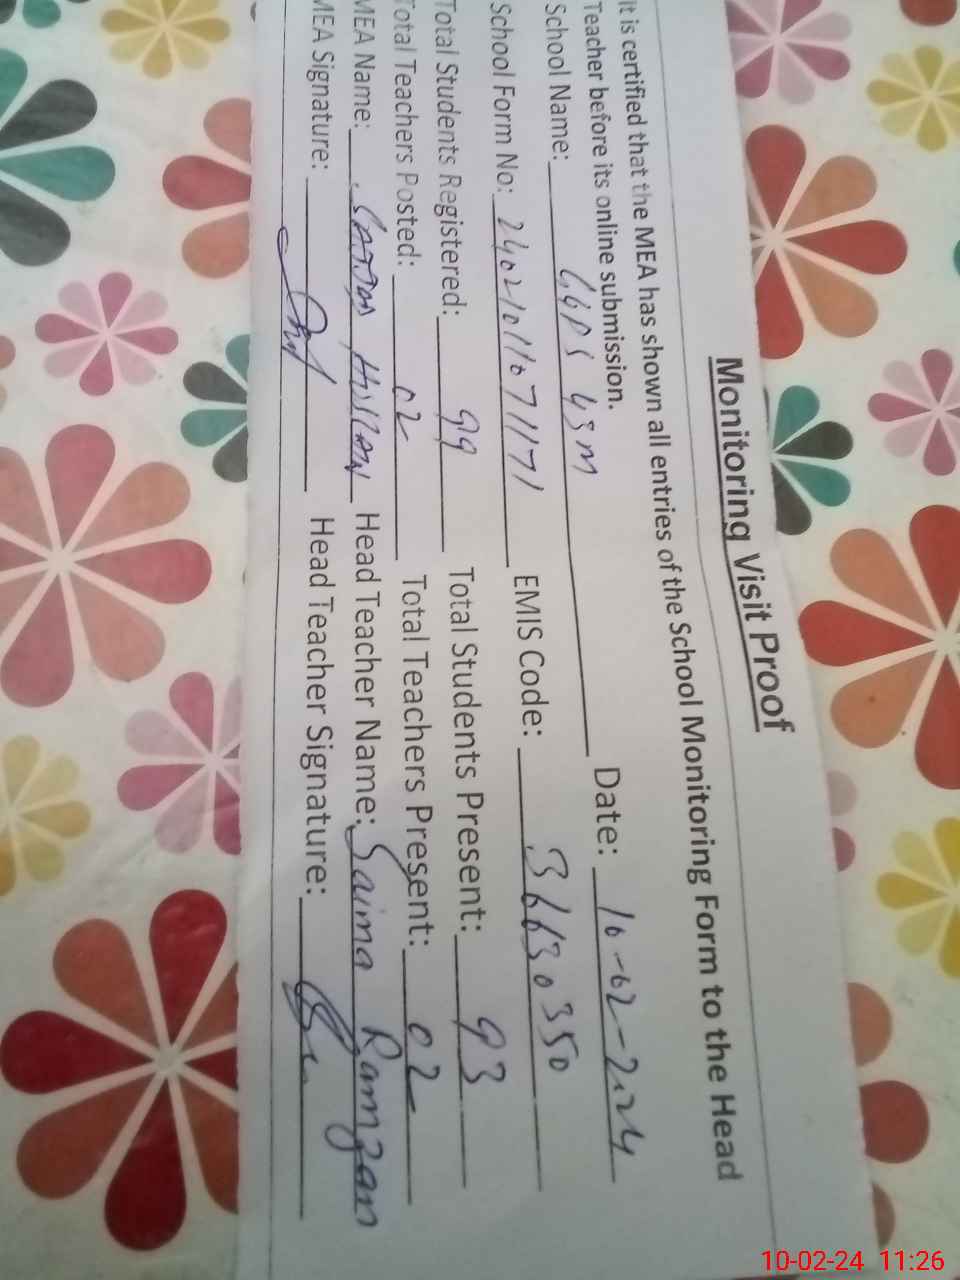 Monitoring Visit Proof
It is certified that the MEA has shown all entries of the School Monitoring Form to the Head
Teacher before its online submission.
School Name: GGPS 45M Date: 10-02-2024
School Form No: EMIS Code: 36630350
Total Students Registered: 99 Total Students Present: 93
Total Teachers Posted: 02 Total Teachers Present: 02
MEA Name: Head Teacher Name: Saima Ramzan
MEA Signature: Head Teacher Signature:
10-02-24 11:26